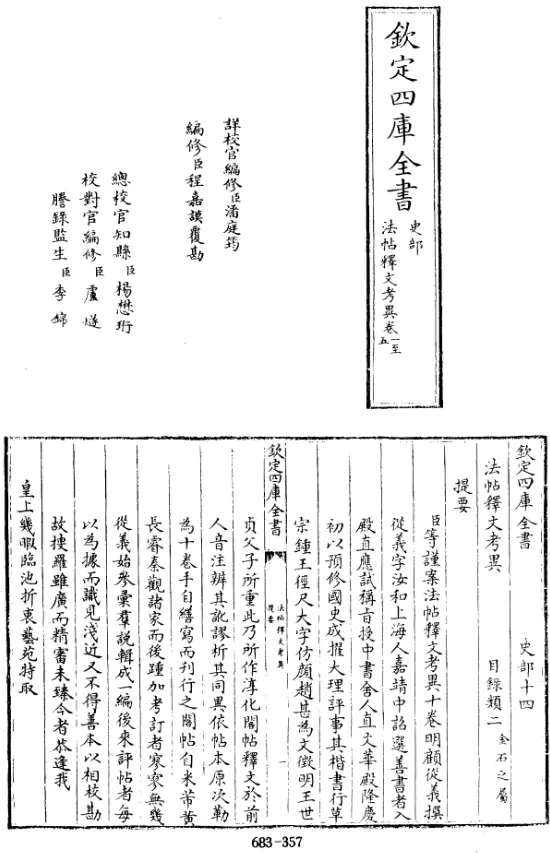 欽定四庫全書
史部
法帖釋文考異卷一至五
詳校官編修臣潘庭筠
編修臣程嘉謨覆勘
總校官知縣臣楊懋珩
校對官編修臣盧燧
謄錄監生臣李錦
欽定四庫全書 史部十四
法帖釋文考異 目錄類二金石之屬
提要
臣等謹案法帖釋文考異十卷明顧從義撰
從義字汝和上海人嘉靖中詔選善書者入
殿直應試稱旨授中書舍人直文華殿隆慶
初以預修國史成擢大理評事其楷書行草
宗鍾王徑尺大字仿顏趙甚為文徵明王世
欽定四庫全書
法帖釋文考異
提要
一
貞父子所重此乃所作淳化閣帖釋文於前
人音注辨其訛謬析其同異依帖本原次勒
為十卷手自繕寫而刊行之閣帖自米芾黃
長睿秦觀諸家而後踵加考訂者寥寥無幾
從義始參彙羣說輯成一編後來評帖者每
以為據而識見淺近又不得善本以相校勘
故援羅雖廣而精審未臻今者恭逢我
皇上幾暇臨池折衷藝苑特取
683-357